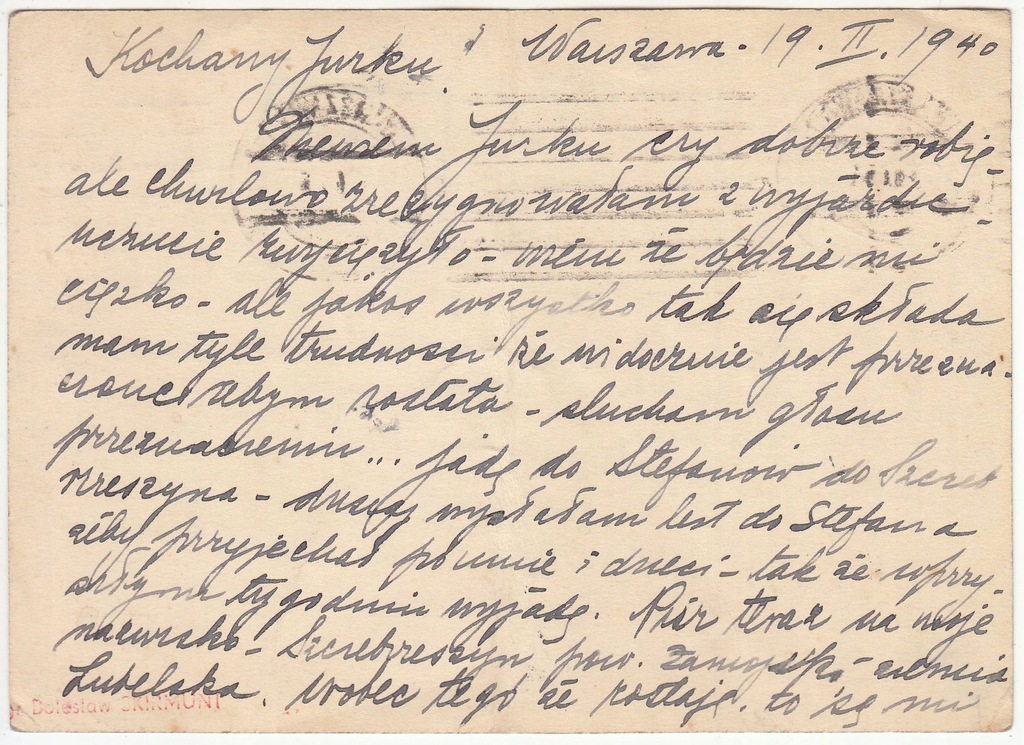 Kochany Jurku! Warszawa - 19. II. 1940
Jurku czy dobrze robię -
ale chwilowo zrezygnowałam z wyjazdu -
uczucie zwyciężyło - wiem że będzie mi
ciężko - ale jakoś wszystko tak się składa
mam tyle trudności że widocznie jest przezna-
czone żebym została - słucham głosu
przeznaczenia... jadę do Stefanów do Szczeb
rzeszyna - dzisiaj wysłałam list do Stefana
żeby przyjechał po mnie i dzieci - tak że w przy-
szłym tygodniu wyjadę. Pisz teraz na moje
nazwisko - Szczebrzeszyn pow. Zamojski - ziemia
Lubelska. Wobec tego że zostaję. to są mi
Bolesław SKIRMUNT